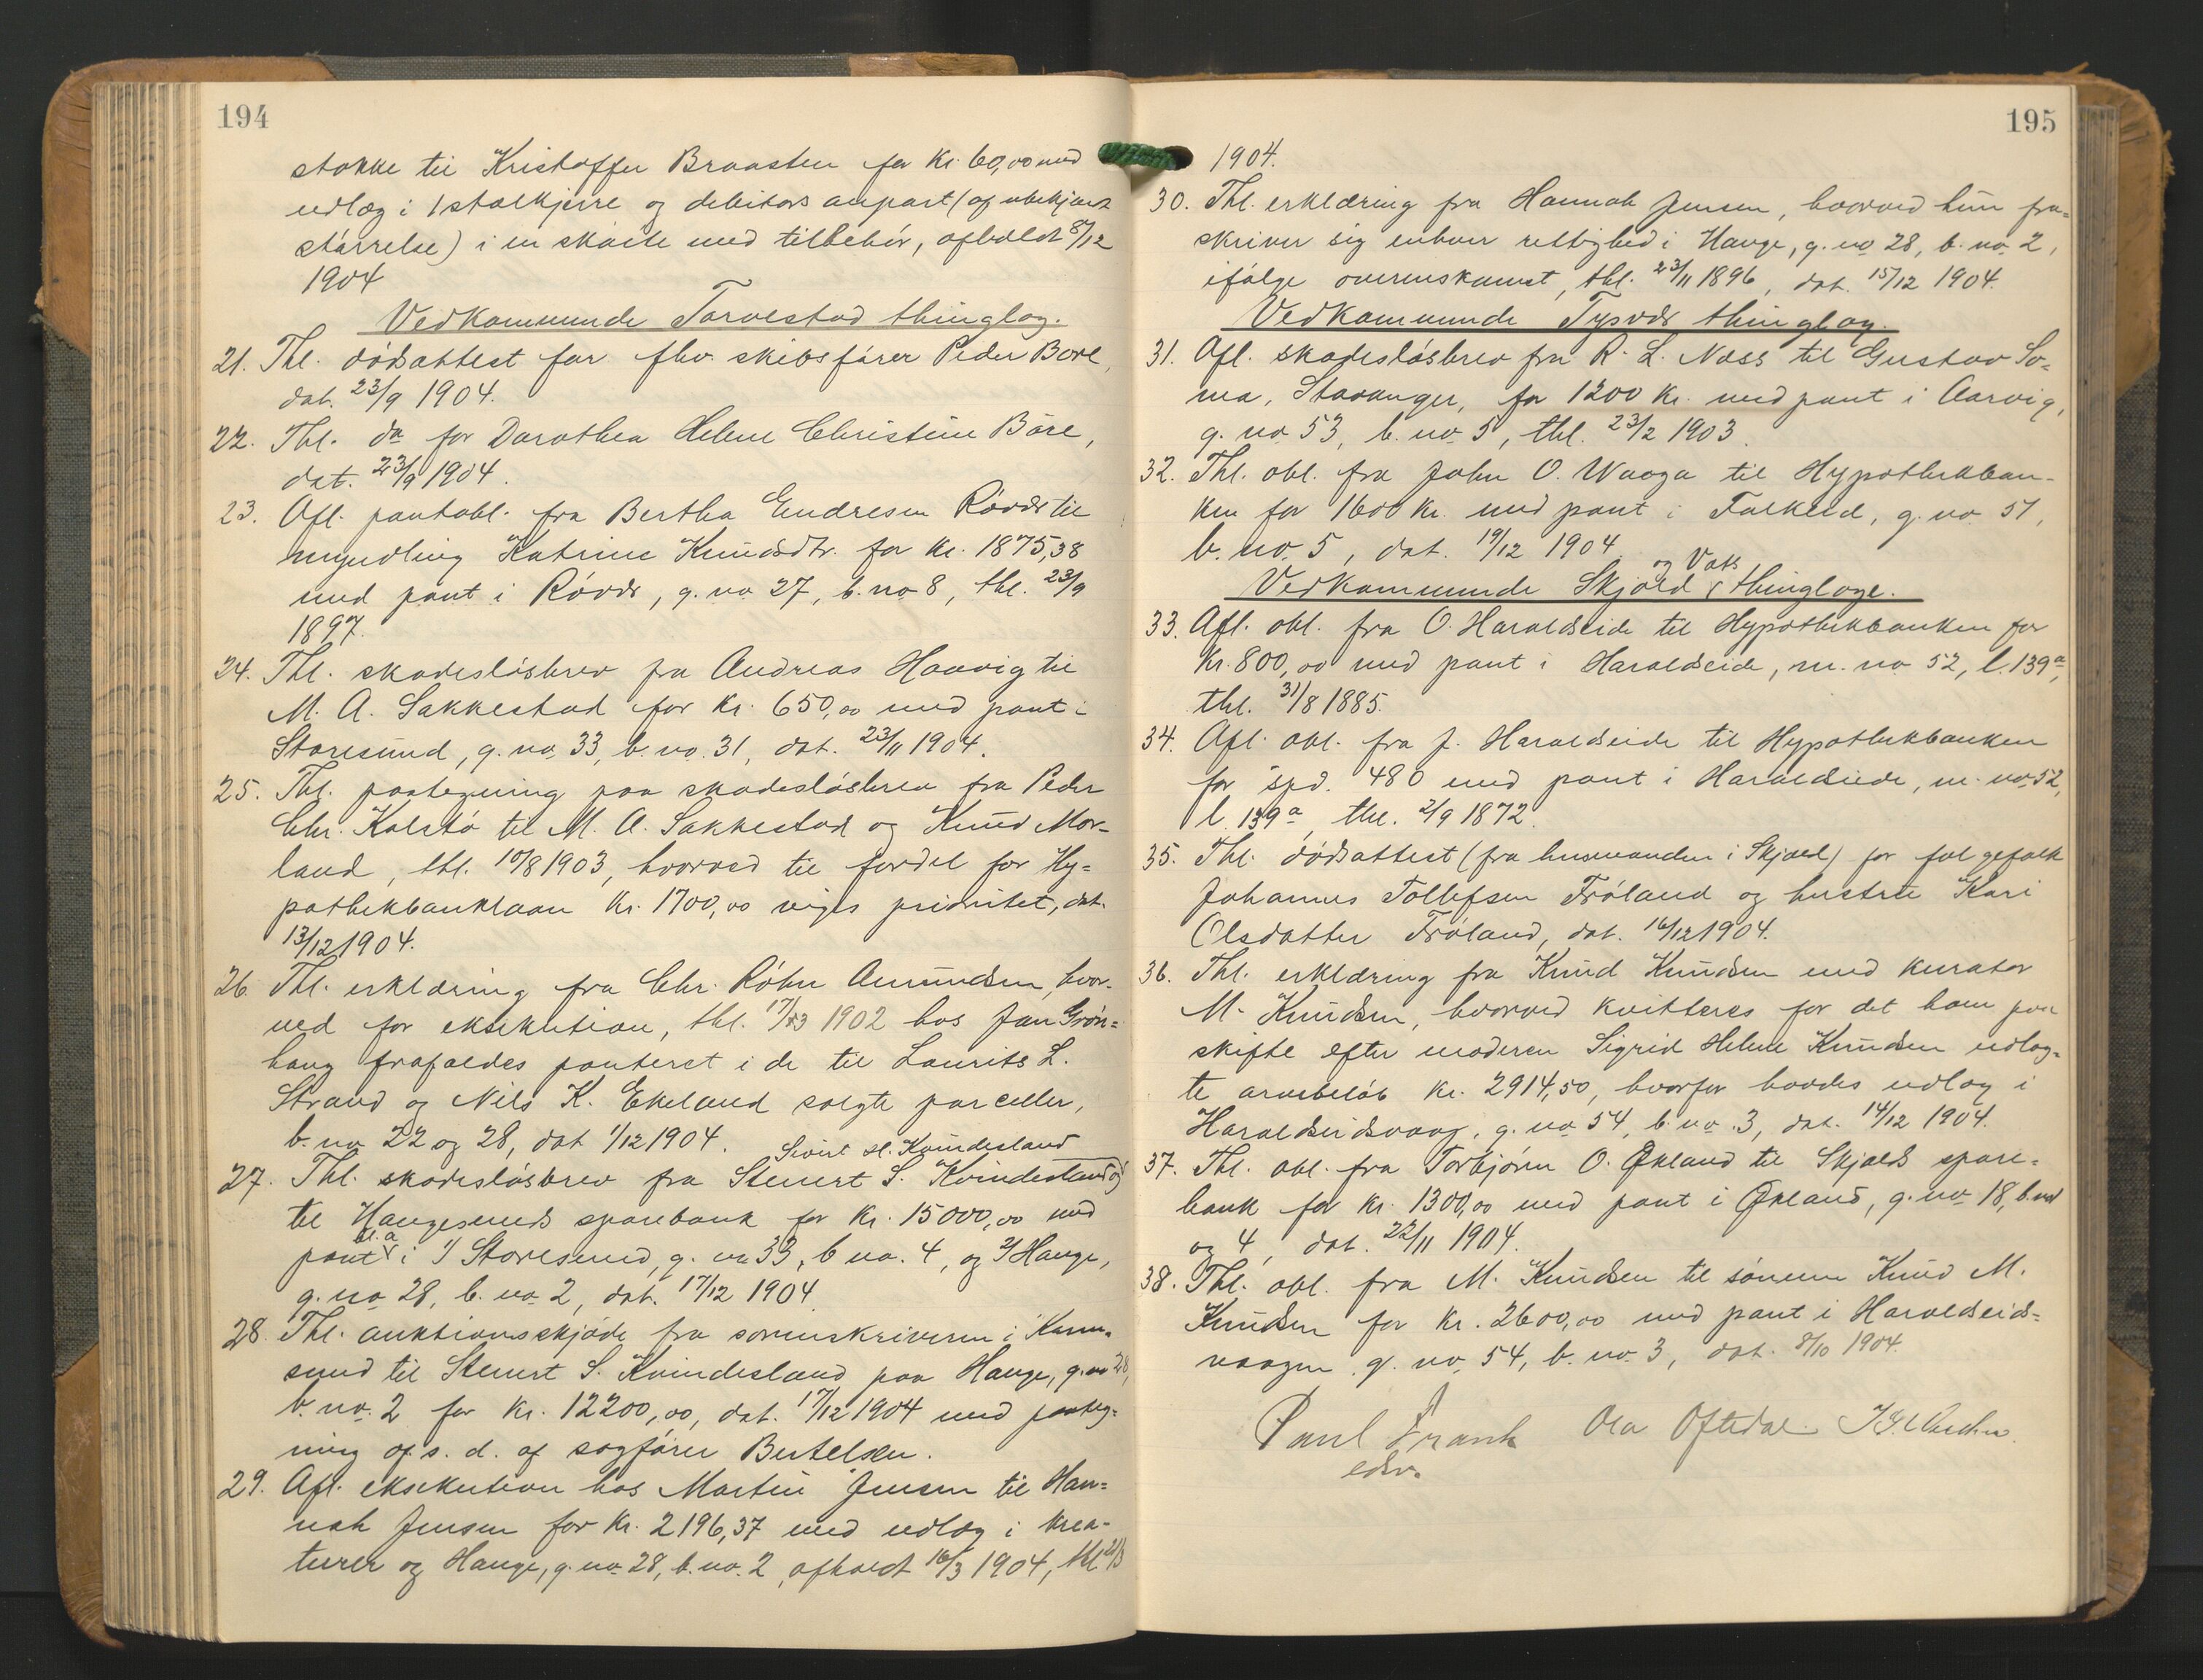 194
stokke til Kristoffer Braasten for Kr. 60,00 med
udlæg i 1 stolkjerre og debitors anpart (af ubekjent
størrelse) i en skøite med tilbehør, afholdt 8/12
1904
Vedkommende Torvestad thinglag.
21. Thl. dødsattest for fhv. skibsfører Peder Bore,
dat. 23/9 1904.
22. Thl. do for Dorothea Helene Christine Bore,
dat. 23/9 1904.
23. Afl. pantobl. fra Bertha Endresen Røvær til
myndling Katrine Knudsdtr. for Kr. 1875,38
med pant i Røvær, g. no 27, b. no 8, thl. 23/9
1897.
24. Thl. skadesløsbrev fra Andreas Haavig til
M. A. Sakkestad for Kr. 650,00 med pant i
Storesund, g. no. 33, b. no. 31, dat. 23/11 1904.
25. Thl. paategning paa skadesløsbrev fra Peder
Chr. Kolstø til M. A. Sakkestad og Knud Mor-
land, thl. 10/8 1903, hvorved til fordel for Hy=
pothekbanklaan Kr. 1700,00 viges prioritet, dat.
13/12 1904.
26. Thl. erklæring fra Chr. Røhr Amundsen, hvor-
ved for eksekution, thl. 17/3 1902 hos Jan Grøn=
haug frafaldes panteret i de til Laurits L.
Strand og Nils K. Ekeland solgte parceller,
b. no 22 og 28, dat 1/12 1904.
Sivert H. Kvindesland
27. Thl. skadesløsbrev fra Stenert S. Kvindesland og
til Haugesunds sparebank for Kr. 15000,00 med
bl. a
pant i 1/ Storesund, g. no 33, b no. 4, og 2/ Hauge,
g. no 28, b. no 2, dat. 17/12 1904.
28. Thl. auktionsskjøde fra sorenskriveren i Karm-
sund til Stenert S. Kvindesland paa Hauge, g. no 28,
b. no. 2 for Kr. 12200,00, dat. 17/12 1904 med paateg=
ning af s. d. af sagfører Bertelsen.
29. Afl. eksekution hos Martin Jensen til Han=
nah Jensen for Kr. 2196,37 med udlæg i krea-
turer og Hauge, g. no 28, b. no. 2, afholdt 16/3 1904, thl 21/3
195
1904.
30. Thl. erklæring fra Hannah Jensen, hvorved hun fra=
skriver sig enhver rettighed i Hauge, g. no 28, b. no. 2,
ifølge overenskomst, thl. 23/11 1896, dat. 15/12 1904.
Vedkommende Tysvær thinglag.
31. Afl. skadesløsbrev fra R. L. Næss til Gustav So=
ma, Stavanger, for 1200 Kr. med pant i Aarvig,
g. no 53, b. no 5, thl. 23/2 1903.
32. Thl. obl. fra John O. Waaga til Hypothekban-
ken for 1600 Kr. med pant i Falkeid, g. no 51,
b. no. 5, dat. 19/12 1904.
og Vats
Vedkommende Skjold thinglage.
33. Afl. obl. fra O. Haraldseide til Hypothekbanken for
Kr. 800,00 med pant i Haraldseide, m. no 52, l. 139a,
thl. 31/8 1885.
34. Afl. obl. fra J. Haraldseide til Hypothekbanken
for spd. 480 med pant i Haraldseide, m. no. 52,
l. 139a, thl. 2/9 1872.
35. Thl. dødsattest (fra lensmanden i Skjold) for folgefolk
Johannes Tollefsen Frøland og hustru Kari
Olsdatter Frøland, dat. 16/12 1904.
36. Thl. erklæring fra Knud Knudsen med kurator
M. Knudsen, hvorved kvitteres for det ham paa
skifte efter moderen Sigrid Helene Knudsen udlag-
te arvebeløb Kr. 2914,50, hvorfor havdes udlæg i
Haraldseidsvaag, g. no 54, b. no. 3, dat. 14/12 1904.
37. Thl. obl. fra Torbjørn O. Økland til Skjolds spare=
bank for Kr. 1300,00 med pant i Økland, g. no 18, b. no
og 4, dat. 22/11 1904.
38. Thl. obl. fra M. Knudsen til sønnen Knud M.
Knudsen for Kr. 2600,00 med pant i Haraldseids=
vaagen g. no. 54, b. no. 3, dat. 8/10 1904.
Paul Frank Ola Oftedal
edsv.